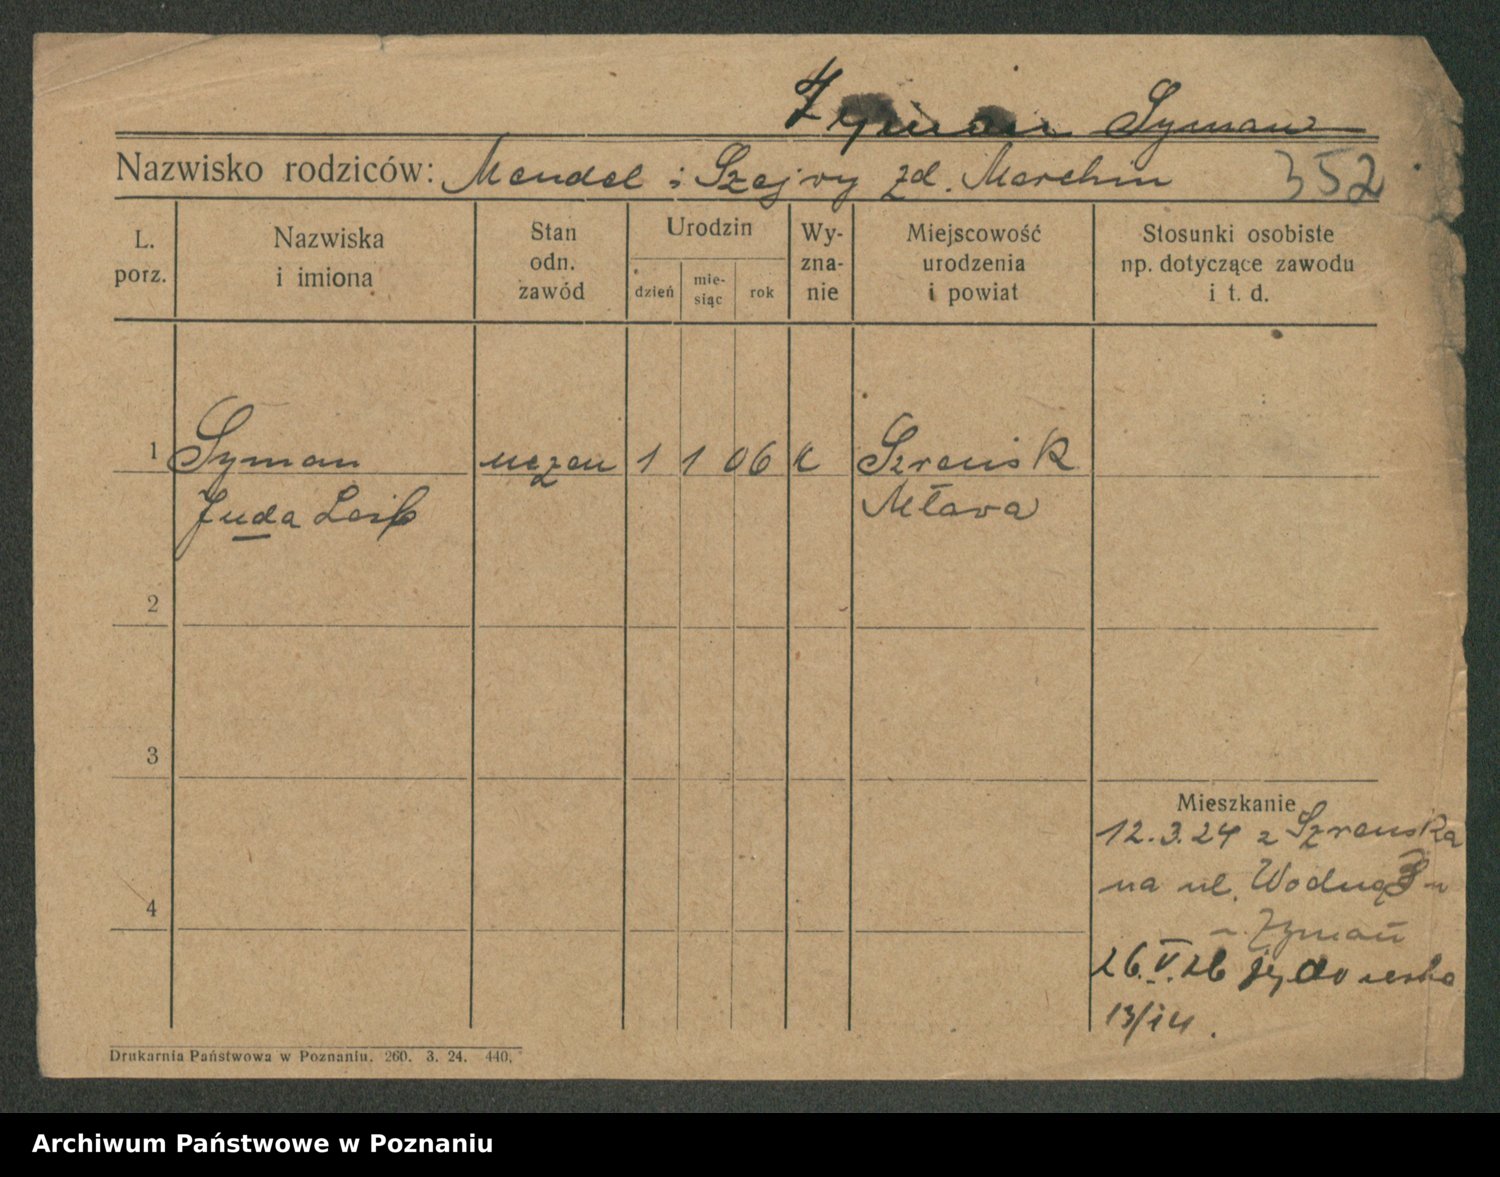 Zyman Szyman
Nazwisko rodziców: Mendel i Szajny zd. Marchin 352
L. porz.
Nazwiska i imiona
Stan odn. zawód
Urodzin
dzień
mie- siąc
rok
Wy- zna- nie
Miejscowość urodzenia i powiat
Stosunki osobiste np. dotyczące zawodu i t. d.
1 Szyman uczeń 1 1 06 Szreńsk
Juda Leib Mława
2
3
Mieszkanie
12.3.24 z Szrenska
na ul. Wodną
Zyman
4
26.V.26 żydowska
13/14.
Drukarnia Państwowa w Poznaniu. 260. 3. 24. 440.
Archiwum Państwowe w Poznaniu